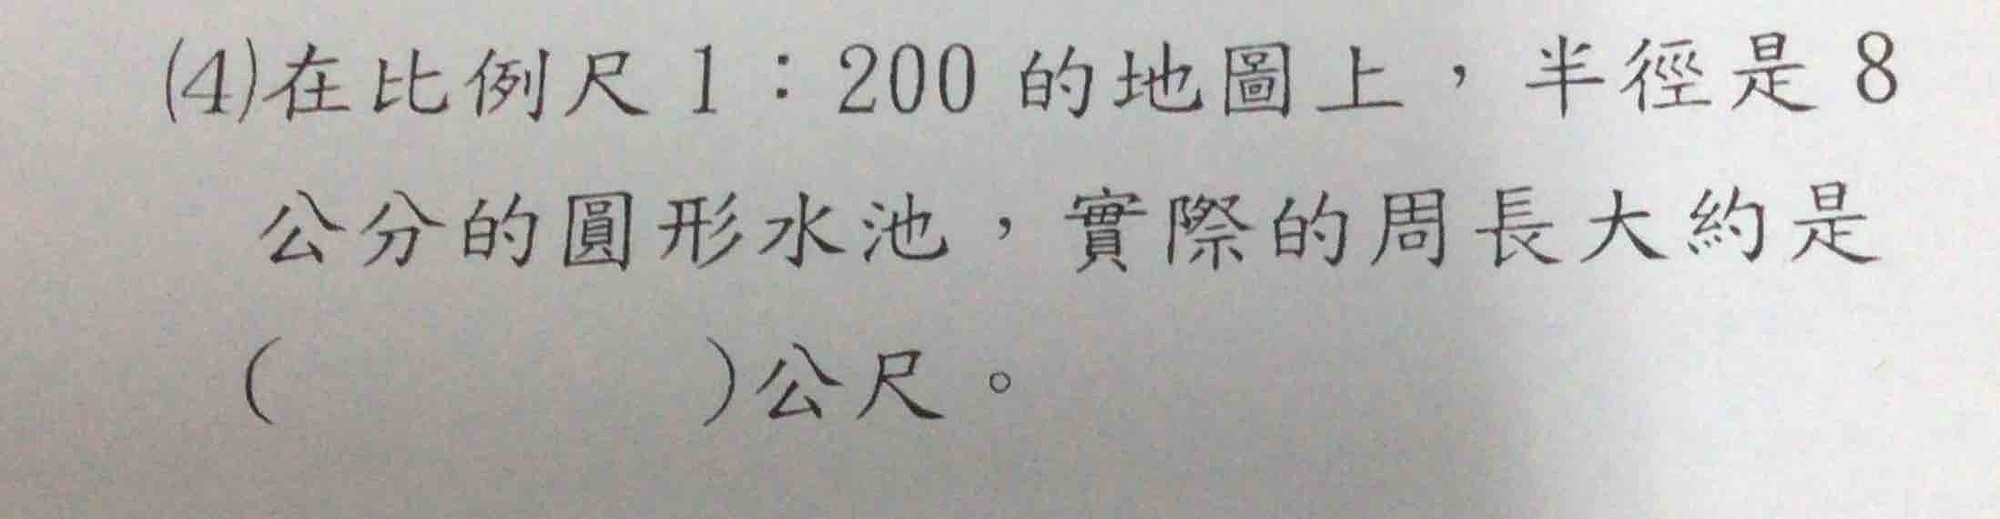 (4)在比例尺 1：200 的地圖上，半徑是 8
公分的圓形水池，實際的周長大約是
(　　　　)公尺。